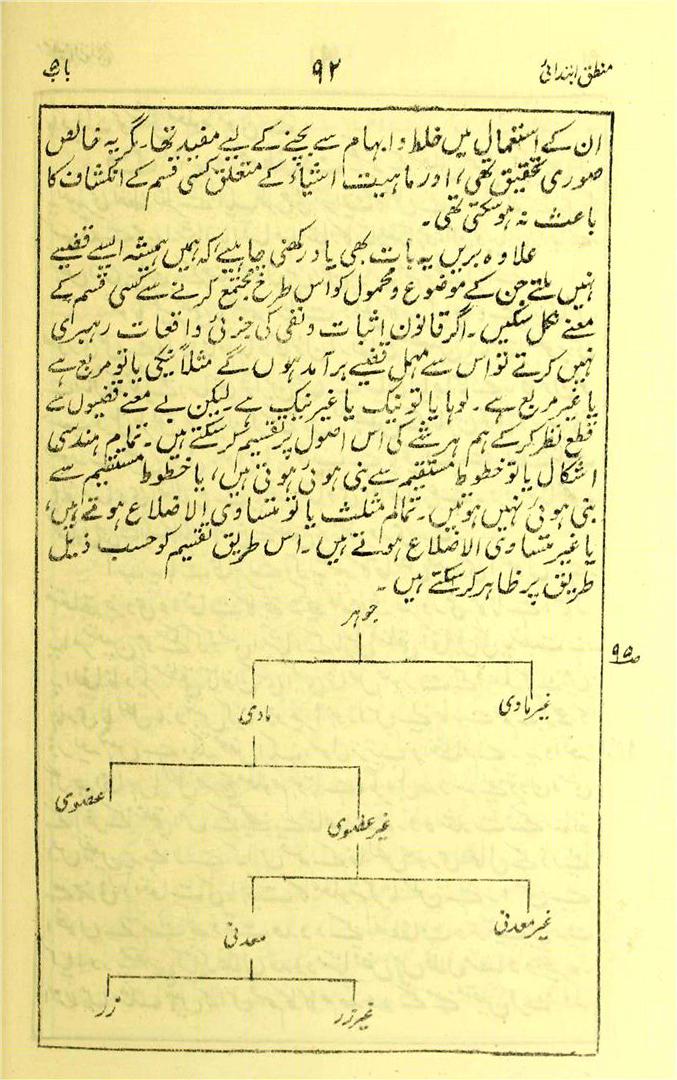 منطق ابتدائی ۹۲ باب
ان کے استعمال میں خلط و ابہام سے بچنے کے لیے مفید تھا۔ مگر یہ خالص
صوری تحقیق تھی، اور ماہیت اشیاء کے متعلق کسی قسم کے انکشاف کا
باعث نہ ہوسکتی تھی۔
علاوہ بریں یہ بات بھی یاد رکھنی چاہیے کہ ہمیں ہمیشہ ایسے قضیے
نہیں ملتے جن کے موضوع و محمول کو اس طرح مجتمع کرنے سے کسی قسم کے
معنے نکل سکیں۔ اگر قانون اثبات و نفی کی جزئی واقعات رہبری
نہیں کرتے تو اس سے مہمل قضیے برآمد ہوں گے مثلاً نیکی یا تو مربع ہے
یا غیر مربع ہے۔ لوہا یا تو نیک یا غیر نیک ہے۔ لیکن بے معنے قضیوں سے
قطع نظر کرکے ہم ہر شے کی اس اصول پر تقسیم کرسکتے ہیں۔ تمام ہندسی
اشکال یا تو خطوط مستقیم سے بنی ہوئی ہوتی ہیں، یا خطوط مستقیم سے
بنی ہوئی نہیں ہوتیں۔ تمام مثلث یا تو متساوی الاضلاع ہوتے ہیں،
یا غیر متساوی الاضلاع ہوتے ہیں۔ اس طریق تقسیم کو حسب ذیل
طریق پر ظاہر کرسکتے ہیں۔
جوہر
ص۹۵
غیر مادی مادی
عضوی
غیر عضوی
غیر معدنی معدنی
غیر زر زر